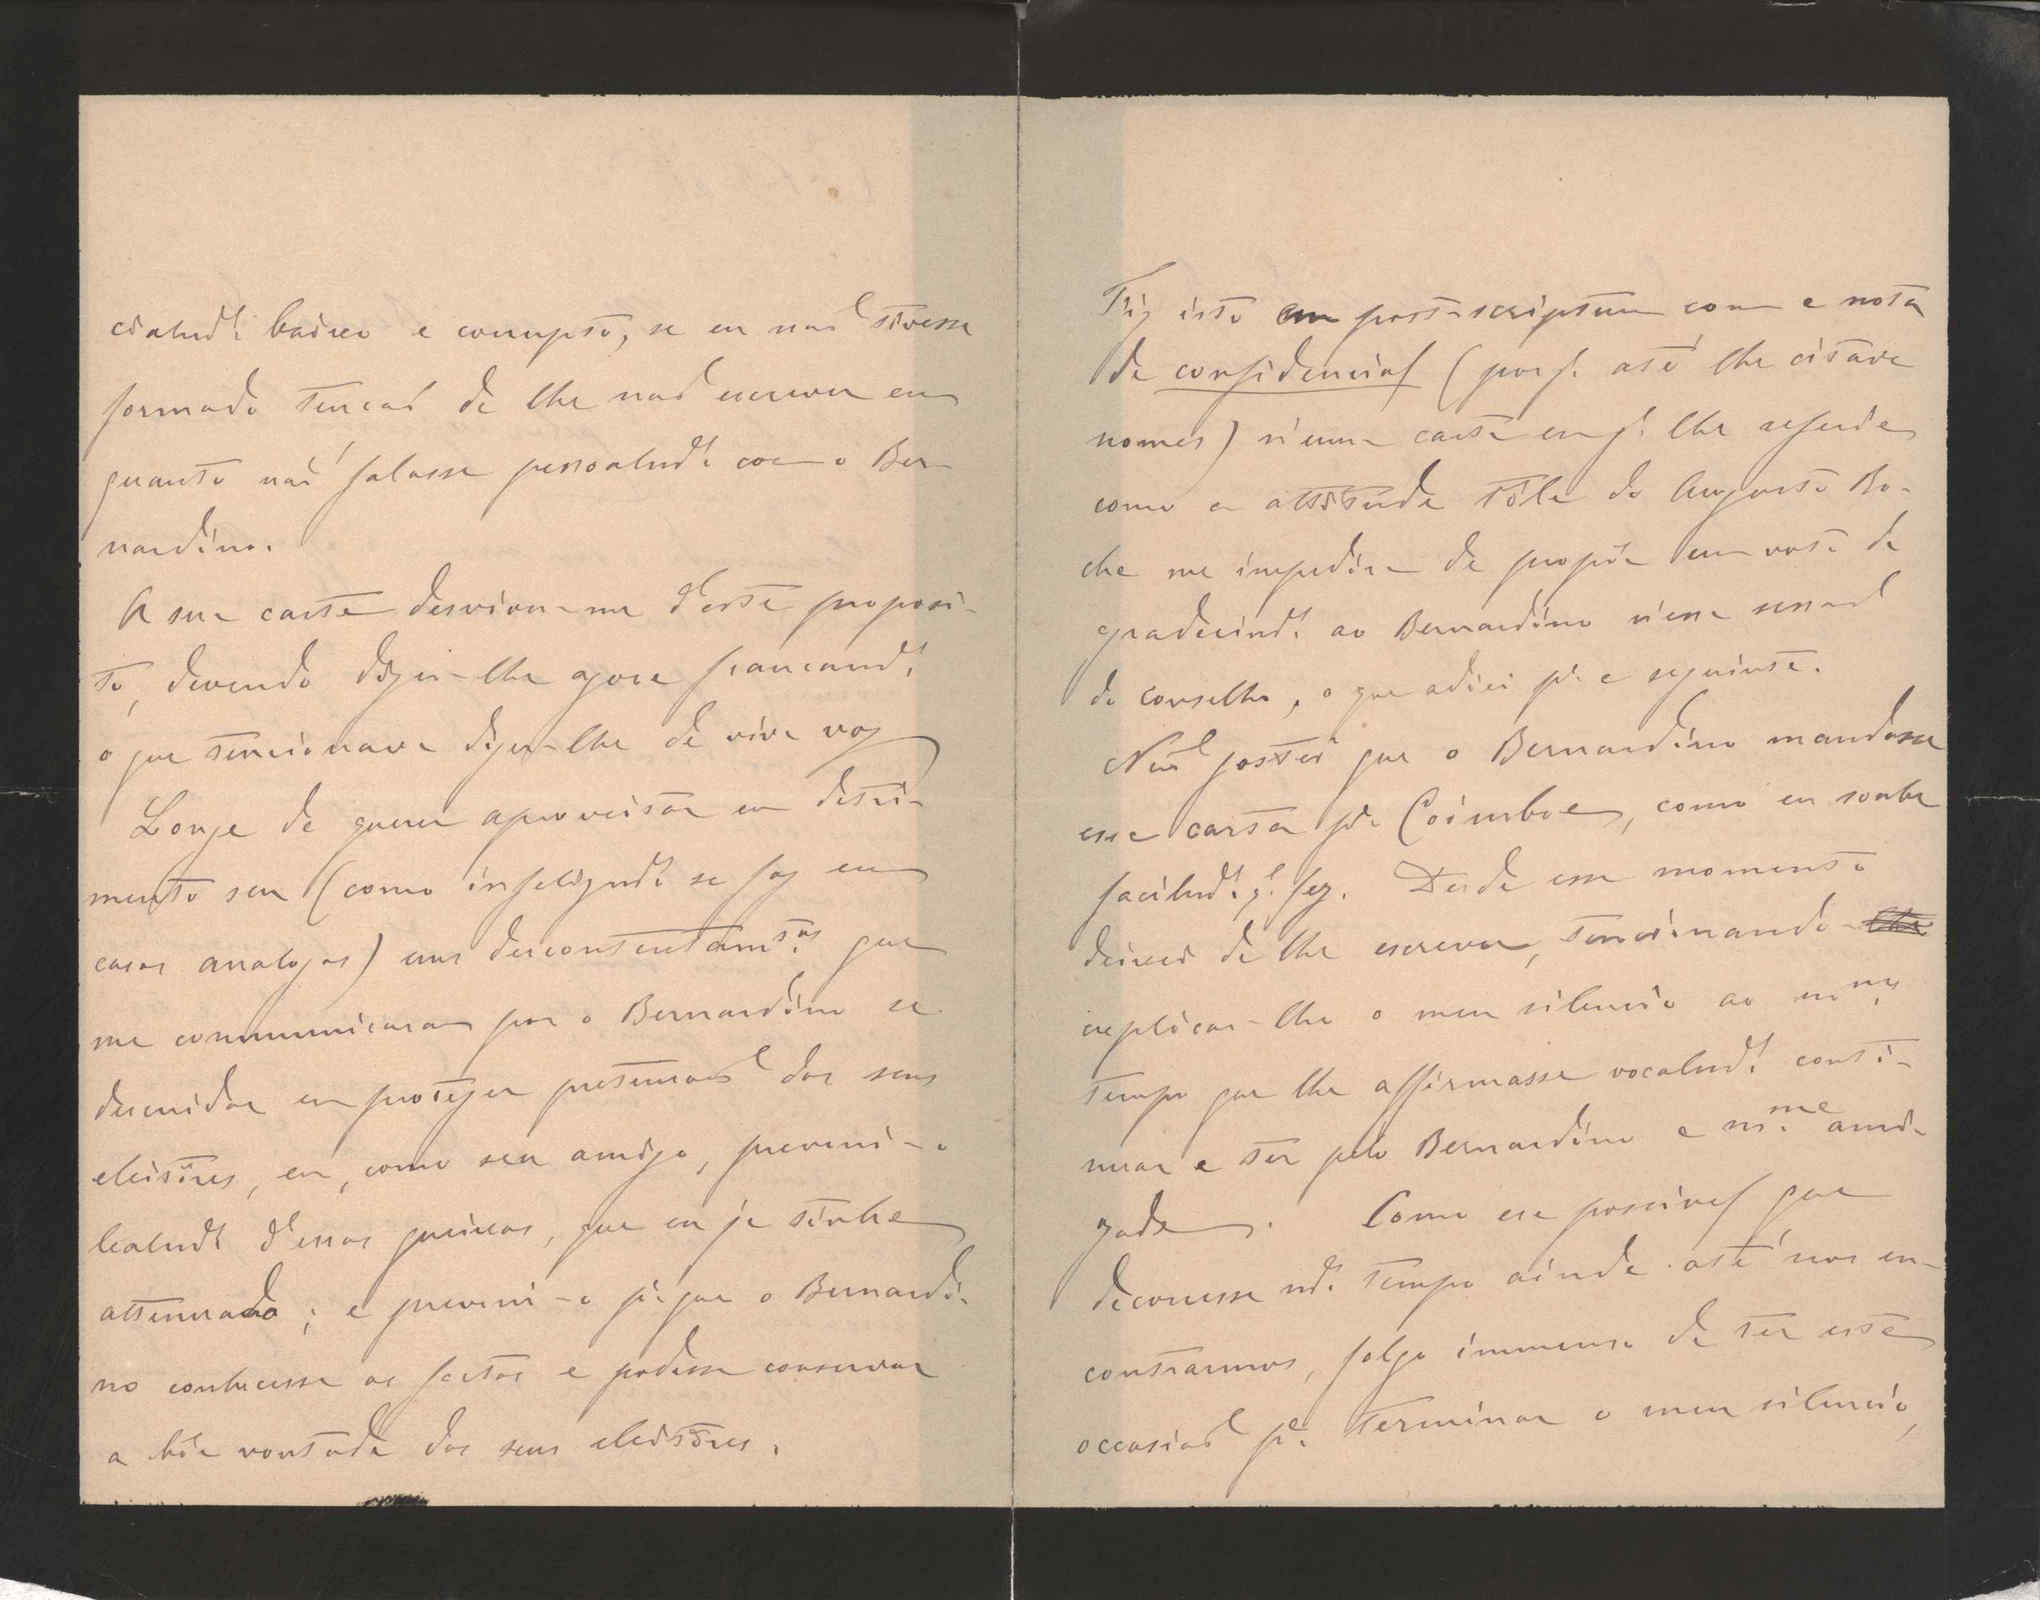 cialmd.e baixo e corrupto, se eu não tivesse
formado tenção de lhe não escrever em
quanto não falasse pessoalmd.e com o Ber-
nardino.
A sua carta desviou-me d'este proposi-
to, devendo dizer-lhe agora francamd.e
o que tencionava dizer-lhe de viva voz
Longe de querer aproveitar em detri-
mento seu (como infelizmd.e se faz em
casos analogos) uns descontentam.tos que
me communicaram por o Bernardino se
descuidar em proteger pretensões dos seus
eleitores, eu, como seu amigo, preveni-o
lealmd.e d'essas queixas, que eu já tinha
attenuado; e preveni-o p.a que o Bernardi-
no conhecesse os factos e podesse conservar
a bôa vontade dos seus eleitores.
Fiz isto em post-scriptum com a nota
de confidencial (porq. até lhe citava
nomes) n'uma carta em q. lhe referia
como a attitude tôla do Augusto Ro-
cha me impedira de propôr um voto de
agradecimd.o ao Bernardino n'essa sessão
do conselho, o que adiei p.a a seguinte.
Não gostei que o Bernardino mandasse
essa carta p.a Coimbra, como eu soube
facilmd.e q. fez. Desde esse momento
deixei de lhe escrever, tencionando
explicar-lhe o meu silencio ao mm.o
tempo que lhe affirmasse vocalmd.e conti-
nuar a ser pelo Bernardino a m.ma ami-
zade. Como era possivel que
decorresse md.o tempo ainda até nos en-
contrarmos, folgo immenso de ter esta
occasião p.a terminar o meu silencio,